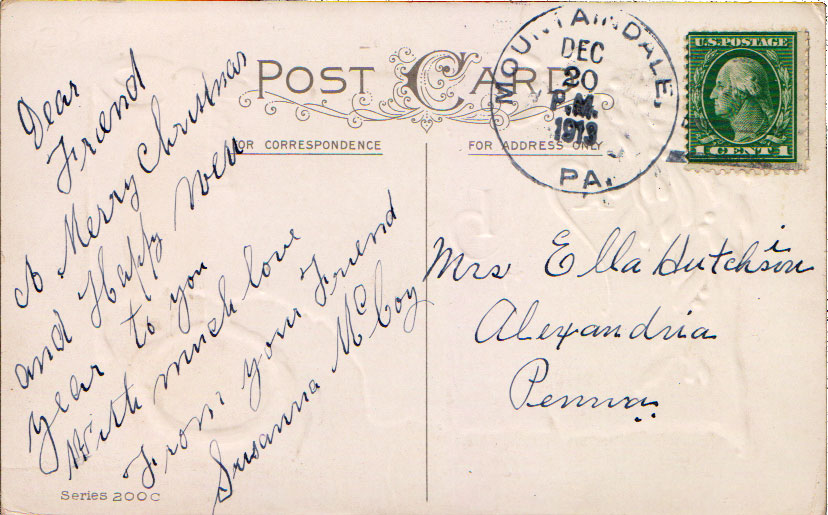 POST CARD
FOR CORRESPONDENCE
FOR ADDRESS ONLY
MOUNTAINDALE,
DEC
20
P.M.
1913
PA.
U.S. POSTAGE
1 CENT 1
Dear
Friend
A Merry Christmas
and Happy New
year to you
With much love
From your Friend
Susanna McCoy
Mrs Ella Hutchison
Alexandria
Penna
Series 200C